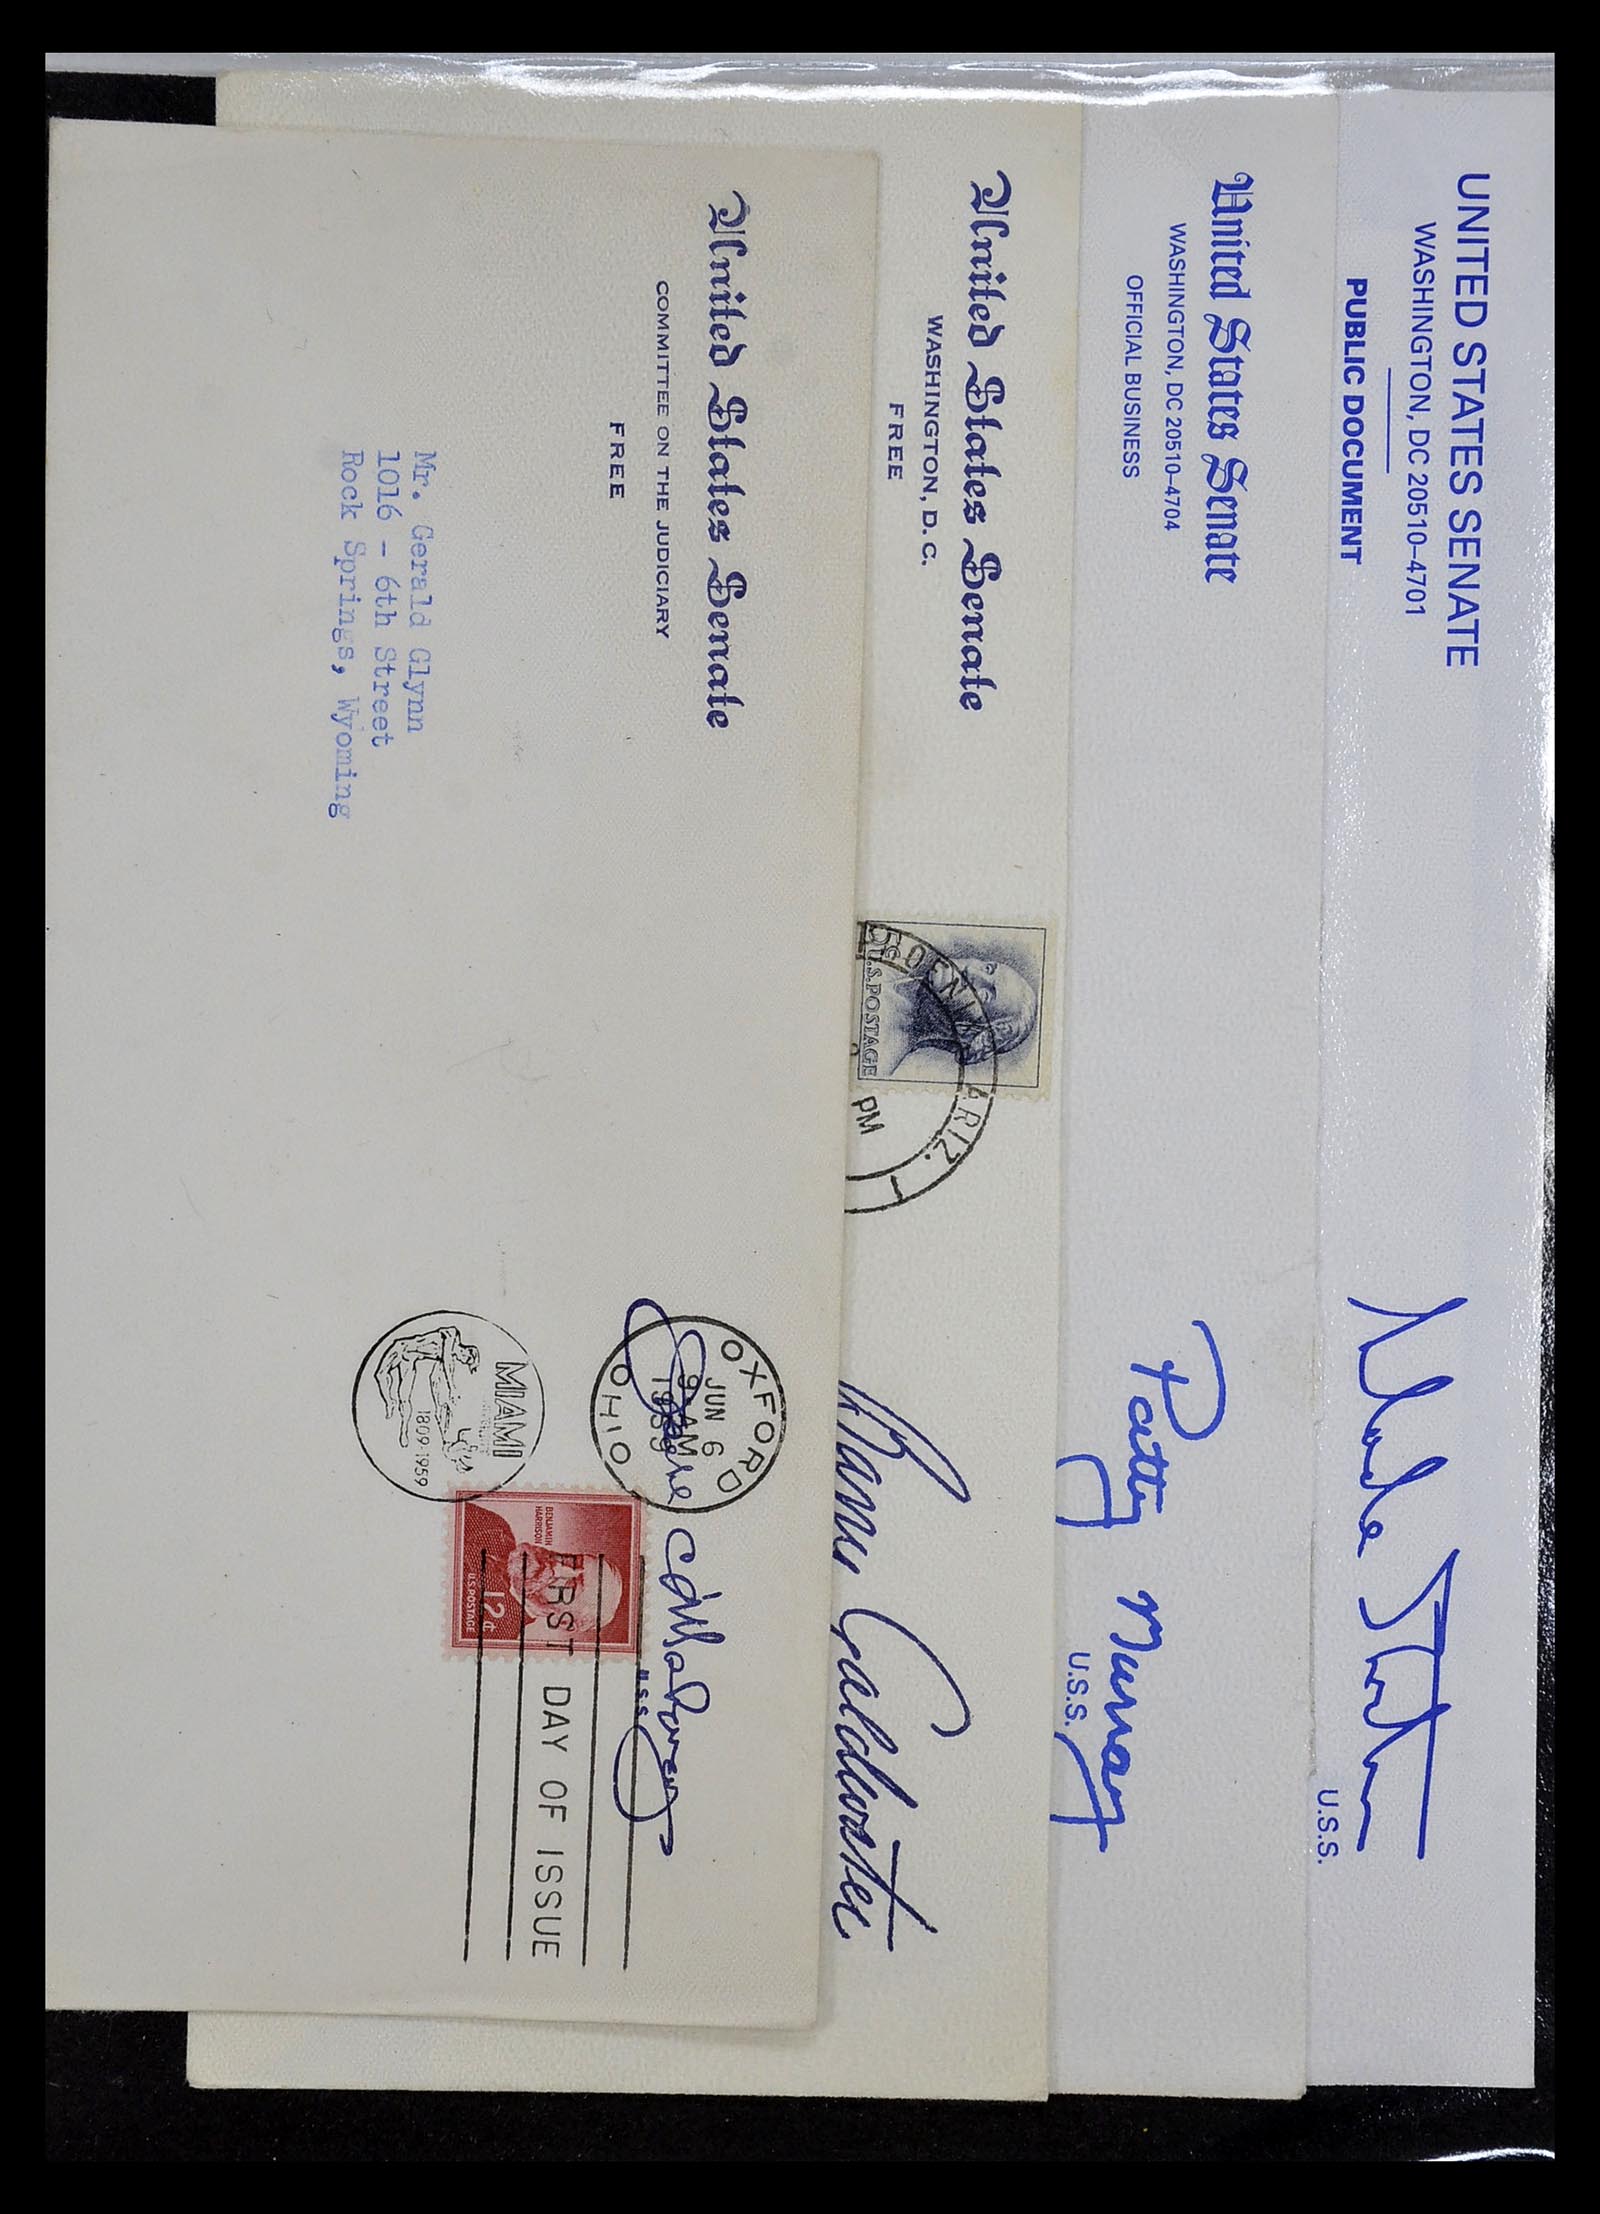 UNITED STATES SENATE
WASHINGTON, DC 20510–4701
PUBLIC DOCUMENT
U.S.S.
United States Senate
WASHINGTON, DC 20510–4704
OFFICIAL BUSINESS
Patty Murray
U.S.S.
United States Senate
WASHINGTON, D.C.
FREE
5c U.S. POSTAGE
ARIZ. 1
PM
Barry Goldwater
United States Senate
COMMITTEE ON THE JUDICIARY
FREE
OXFORD
JUN 6
9 AM
1959
OHIO
U.S.S.
MIAMI
1809-1959
BENJAMIN
HARRISON
12¢
U.S. POSTAGE
FIRST DAY OF ISSUE
Mr. Gerald Glynn
1016 - 6th Street
Rock Springs, Wyoming